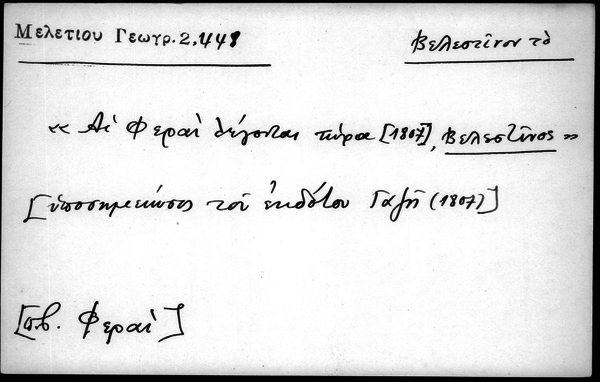 Μελετίου Γεωγρ. 2.448
Βελεστῖνον τὸ
« Αἱ Φεραὶ λέγονται τώρα [1807], Βελεστῖνος »
[ὑποσημείωσις τοῦ ἐκδότου Γαζῆ (1807)]
[πβ. Φεραί]